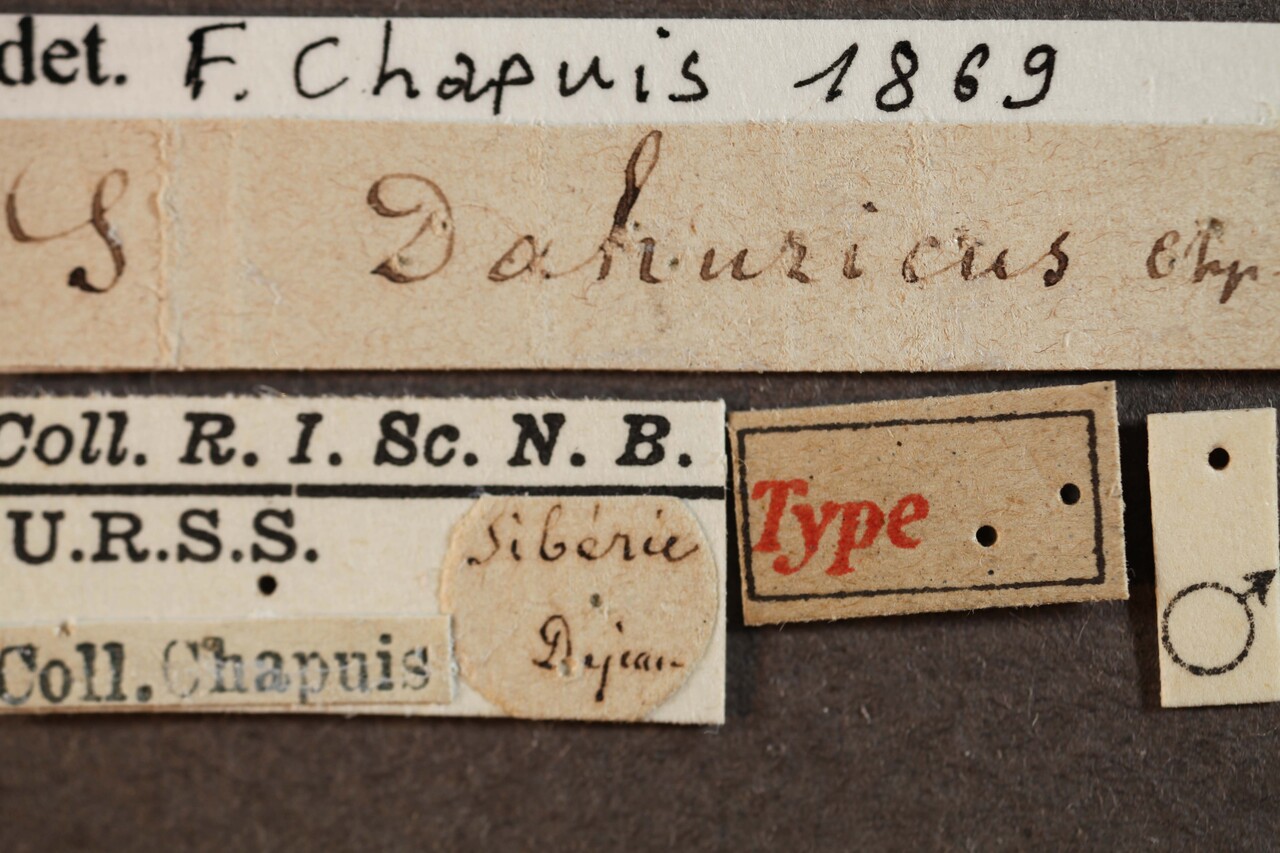 det. F. Chapuis 1869
S Dahuricus Chp.
Coll. R. I. Sc. N. B.
U.R.S.S.
Coll. Chapuis
Sibérie
Dejean
Type
♂